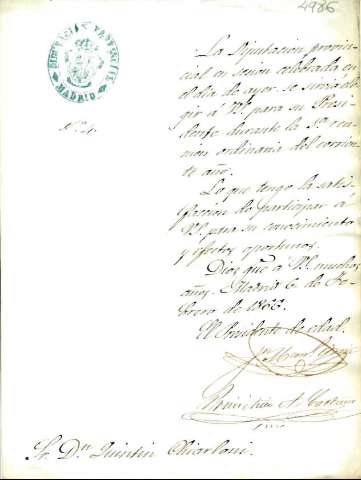 4986
DIPUTACION PROVINCIAL
MADRID
La Diputación provin-
cial en sesion celebrada en
el dia de ayer se sirvió ele-
gir á V.S. para su Presi-
dente durante la 1ª reu-
nion ordinaria del corrien-
te año.
Lo que tengo la satis-
faccion de participar á
V.S. para su conocimiento
y efectos oportunos.
Dios gue á V.S. muchos
años. Madrid 6 de Fe-
brero de 1866.
El Presidente de edad.
Sr. Dn. Quintin Chiarloni.